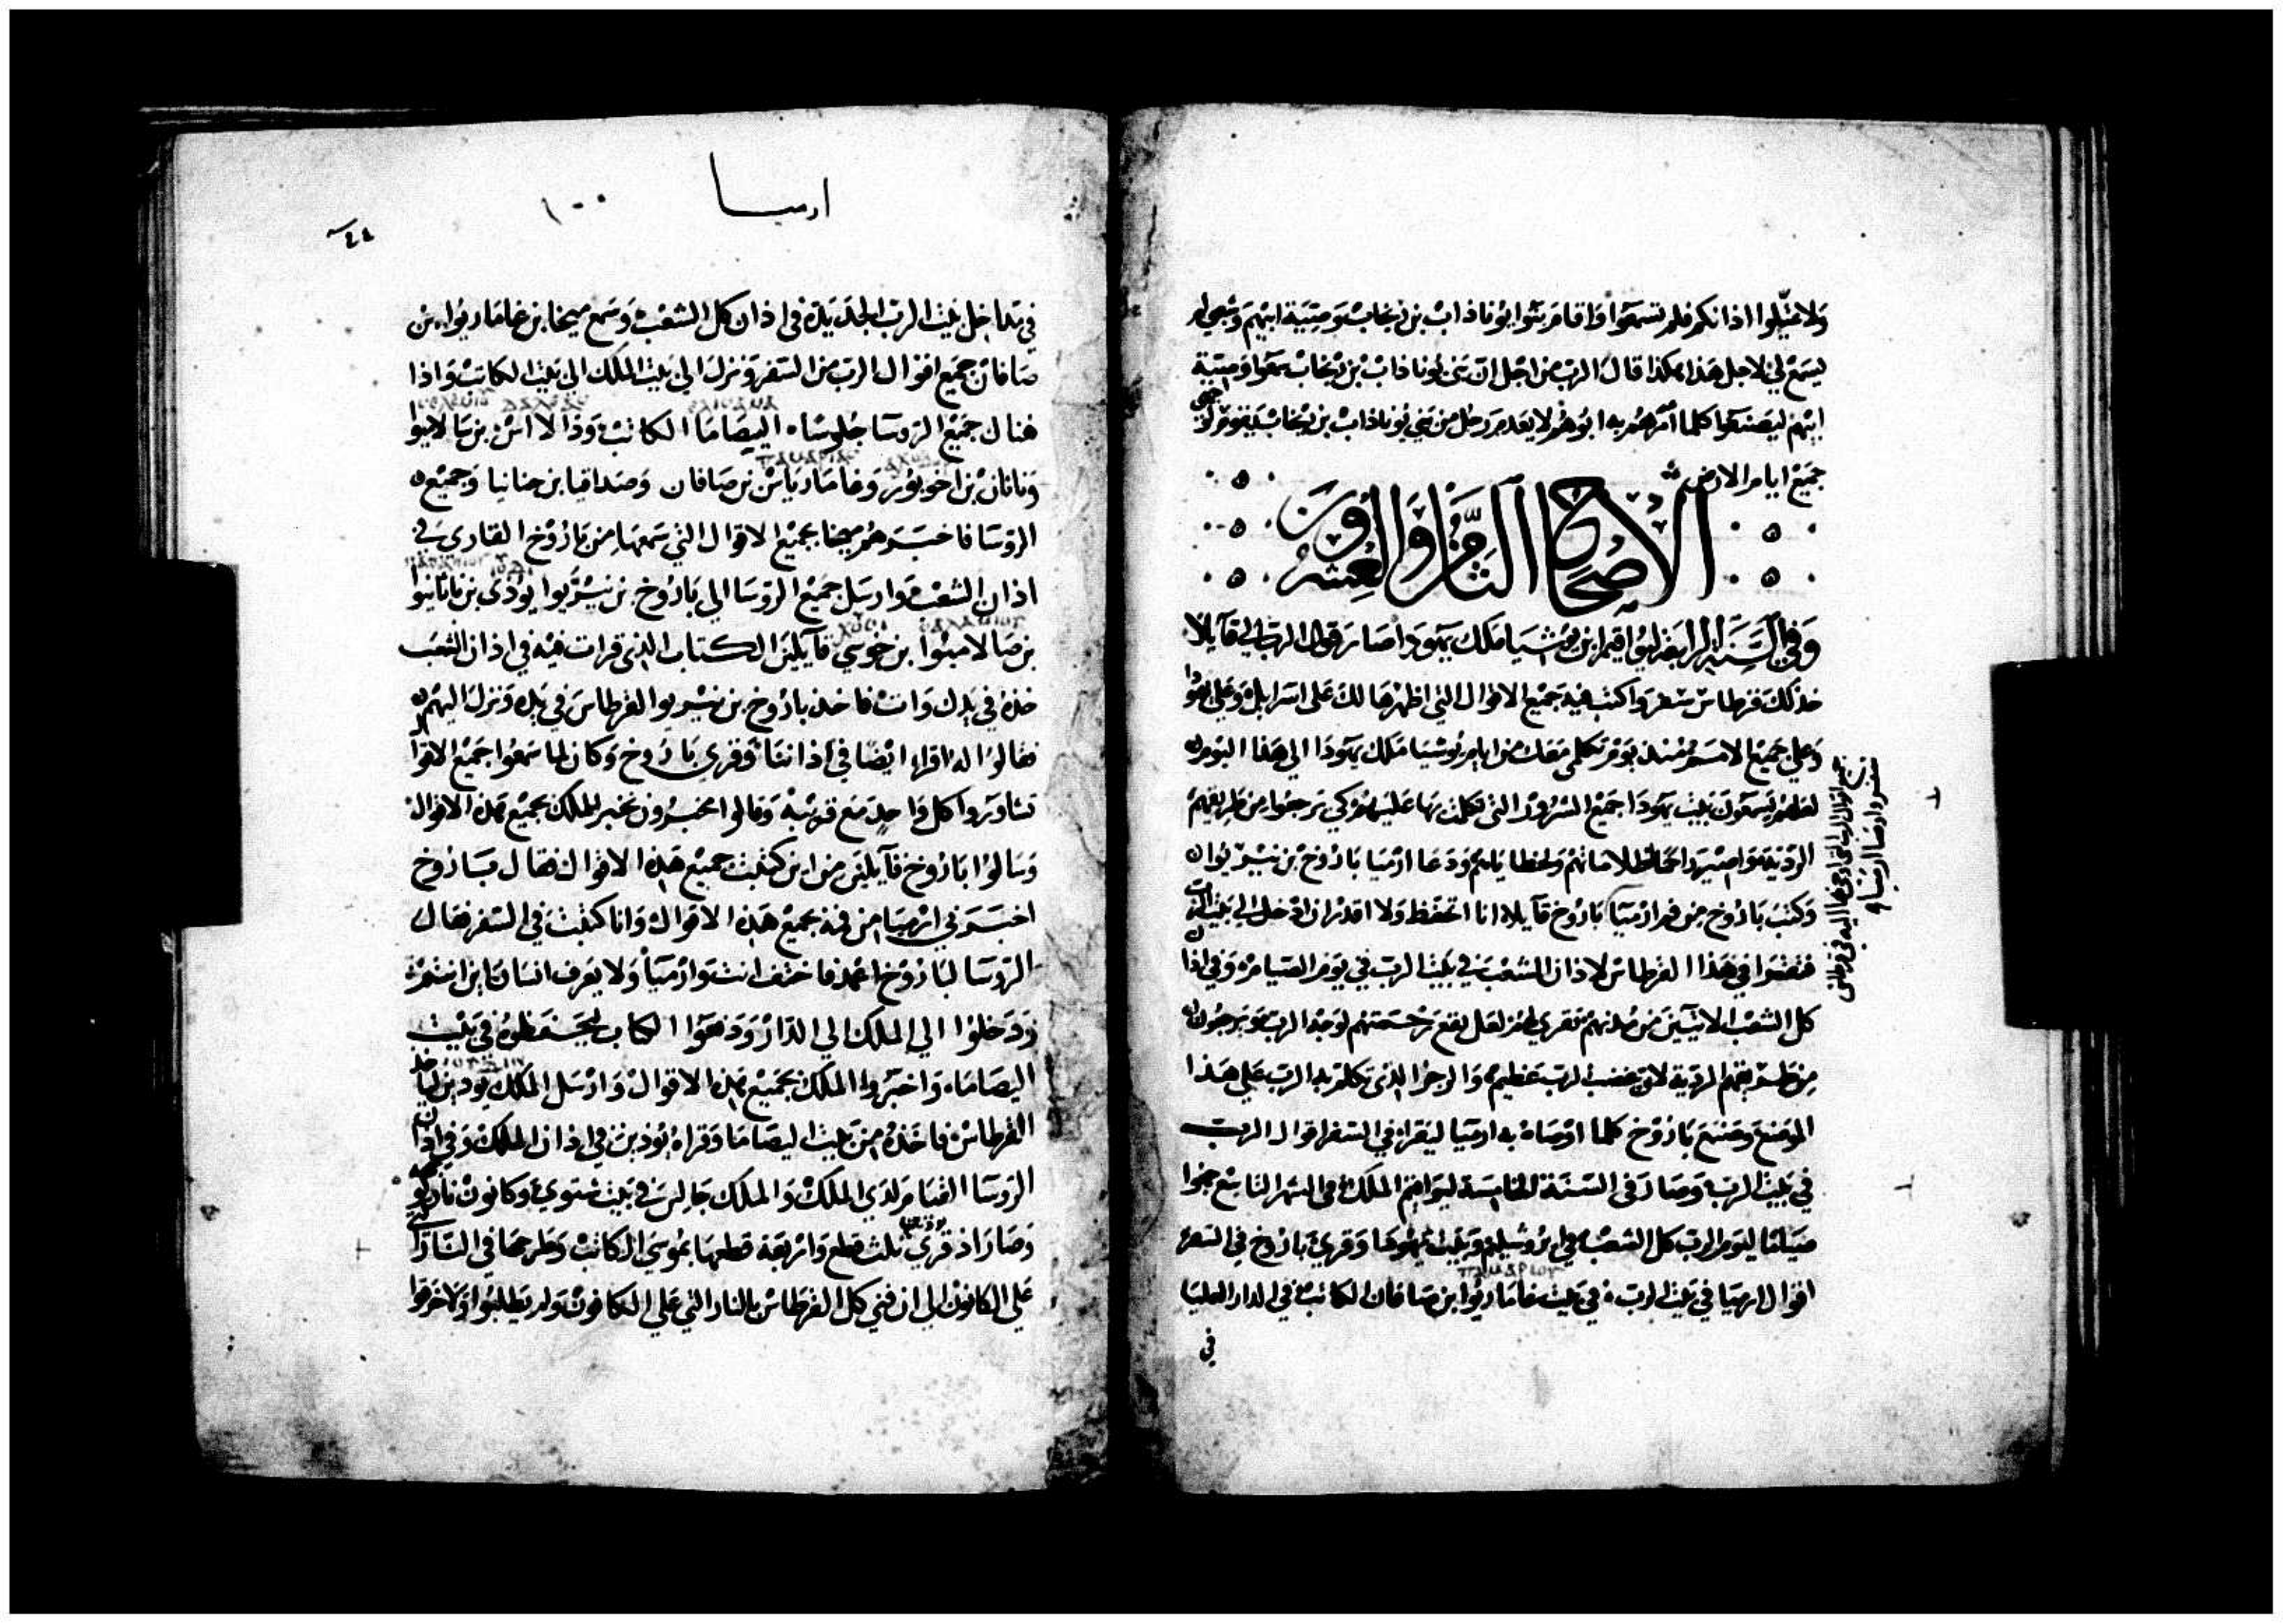 ولا ميلوا اذانكم فلم تسمعوا واقاموا بنوا يوناذاب بن ريخاب وصية ابيهم
ليسمع لي لاجل هذا هكذا قال الرب من اجل ان بني يوناذاب بن ريخاب سمعوا وصية
ابيهم ليصنعوا كلما امرهم به ابوهم لا يعدم رجل من بني يوناذاب بن ريخاب
جميع ايام الارض
الاصحاح الثامن والعشرون
وفي السنة الرابعة ليواقيم ابن يوشيا ملك يهودا صار قول الرب الي قايلا
خذ لك قرطاس سفر واكتب فيه جميع الاقوال التي اظهرها لك على اسراييل وعلى يهودا
وعلي جميع الامم منذ يوم تكلمي معك من ايام يوشيا ملك يهودا الي هذا اليوم
لعلهم يسمعون بيت يهودا جميع الشرور التي تكلمت بها عليهم كي يرجعوا من طريقهم
الردية واصير لظلاماتهم ولخطاياهم ودعا ارميا باروخ بن نيريوا
وكتب باروخ من فم ارميا باروخ قايلا انا اتحفظ ولا اقدر ان ادخل الي بيت الرب
في هذا القرطاس لاذان الشعب في بيت الرب في يوم الصيام وفي اذان
كل الشعب الاتيين من مدنهم تقري لهم لعل يقع رحمتهم لوجه الرب ويرجعون
من طريقهم الردية لان غضب الرب عظيم والرجز الذي تكلم به الرب علي هذا
الموضع وصنع باروخ كلما اوصاه به ارميا ليقراء في السفر اقوال الرب
في بيت الرب وصار في السنة الخامسة ليواقيم الملك في الشهر التاسع
صياما ليوم الرب كل الشعب في يروشليم وبيت يهودا وقري باروخ في السفر
اقوال ارميا في بيت الرب في بيت غاماريوا بن صافان الكاتب في الدار العليا
في
ارميا ١٠٠
في مداخل بيت الرب الجديدة في اذان كل الشعب وسمع ميخا بن غاماريوا بن
صافان جميع اقوال الرب من السفر ونزل الي بيت الملك الي بيت الكاتب واذا
هناك جميع الروسا جلوسا اليصاما الكاتب ودالااس بن سالاميوا
وناثان بن اخوبور وغاماريااس بن صافان وصداقيا بن حنانيا وجميع
الروسا فاخبرهم ميخا بجميع الاقوال التي سمعها من باروخ القاري في
اذان الشعب وارسل جميع الروسا الي باروخ بن نيريوا يودي بن ناثانيوا
بن صالاميوا بن خوسي قايلين الكتاب الذي قرات فيه في اذان الشعب
خذه في يدك وات فاخذ باروخ بن نيريوا القرطاس في يده ونزل اليهم
فقالوا له اقراء ايضا في اذاننا وقري باروخ وكان لما سمعوا جميع الاقوال
تشاوروا كل واحد مع قريبه وقالوا نخبر الملك بجميع هذه الاقوال
وسالوا باروخ قايلين من اين كتبت جميع هذه الاقوال فقال باروخ
اخبرني ارميا من فمه بجميع هذه الاقوال وانا كتبت في السفر فقال
الروسا لباروخ فاختف انت وارميا ولا يعرف انسان اين انتم
ودخلوا الي الملك الي الدار ودفعوا الكتاب ليحتفظوه في بيت
اليصاما واخبروا الملك بجميع هذه الاقوال وارسل الملك يودين
القرطاس فاخذه من بيت اليصاما وقراه يودين في اذان الملك وفي اذان
الروسا القيام لدي الملك والملك جالس في بيت شتوي وكانون نار
وصار اذ قري ثلث قطع واربعة قطعها بموسي الكاتب وطرحها في النار التي
علي الكانون الي ان فني كل القرطاس بالنار التي علي الكانون ولم يطلبوا ولا خرقوا